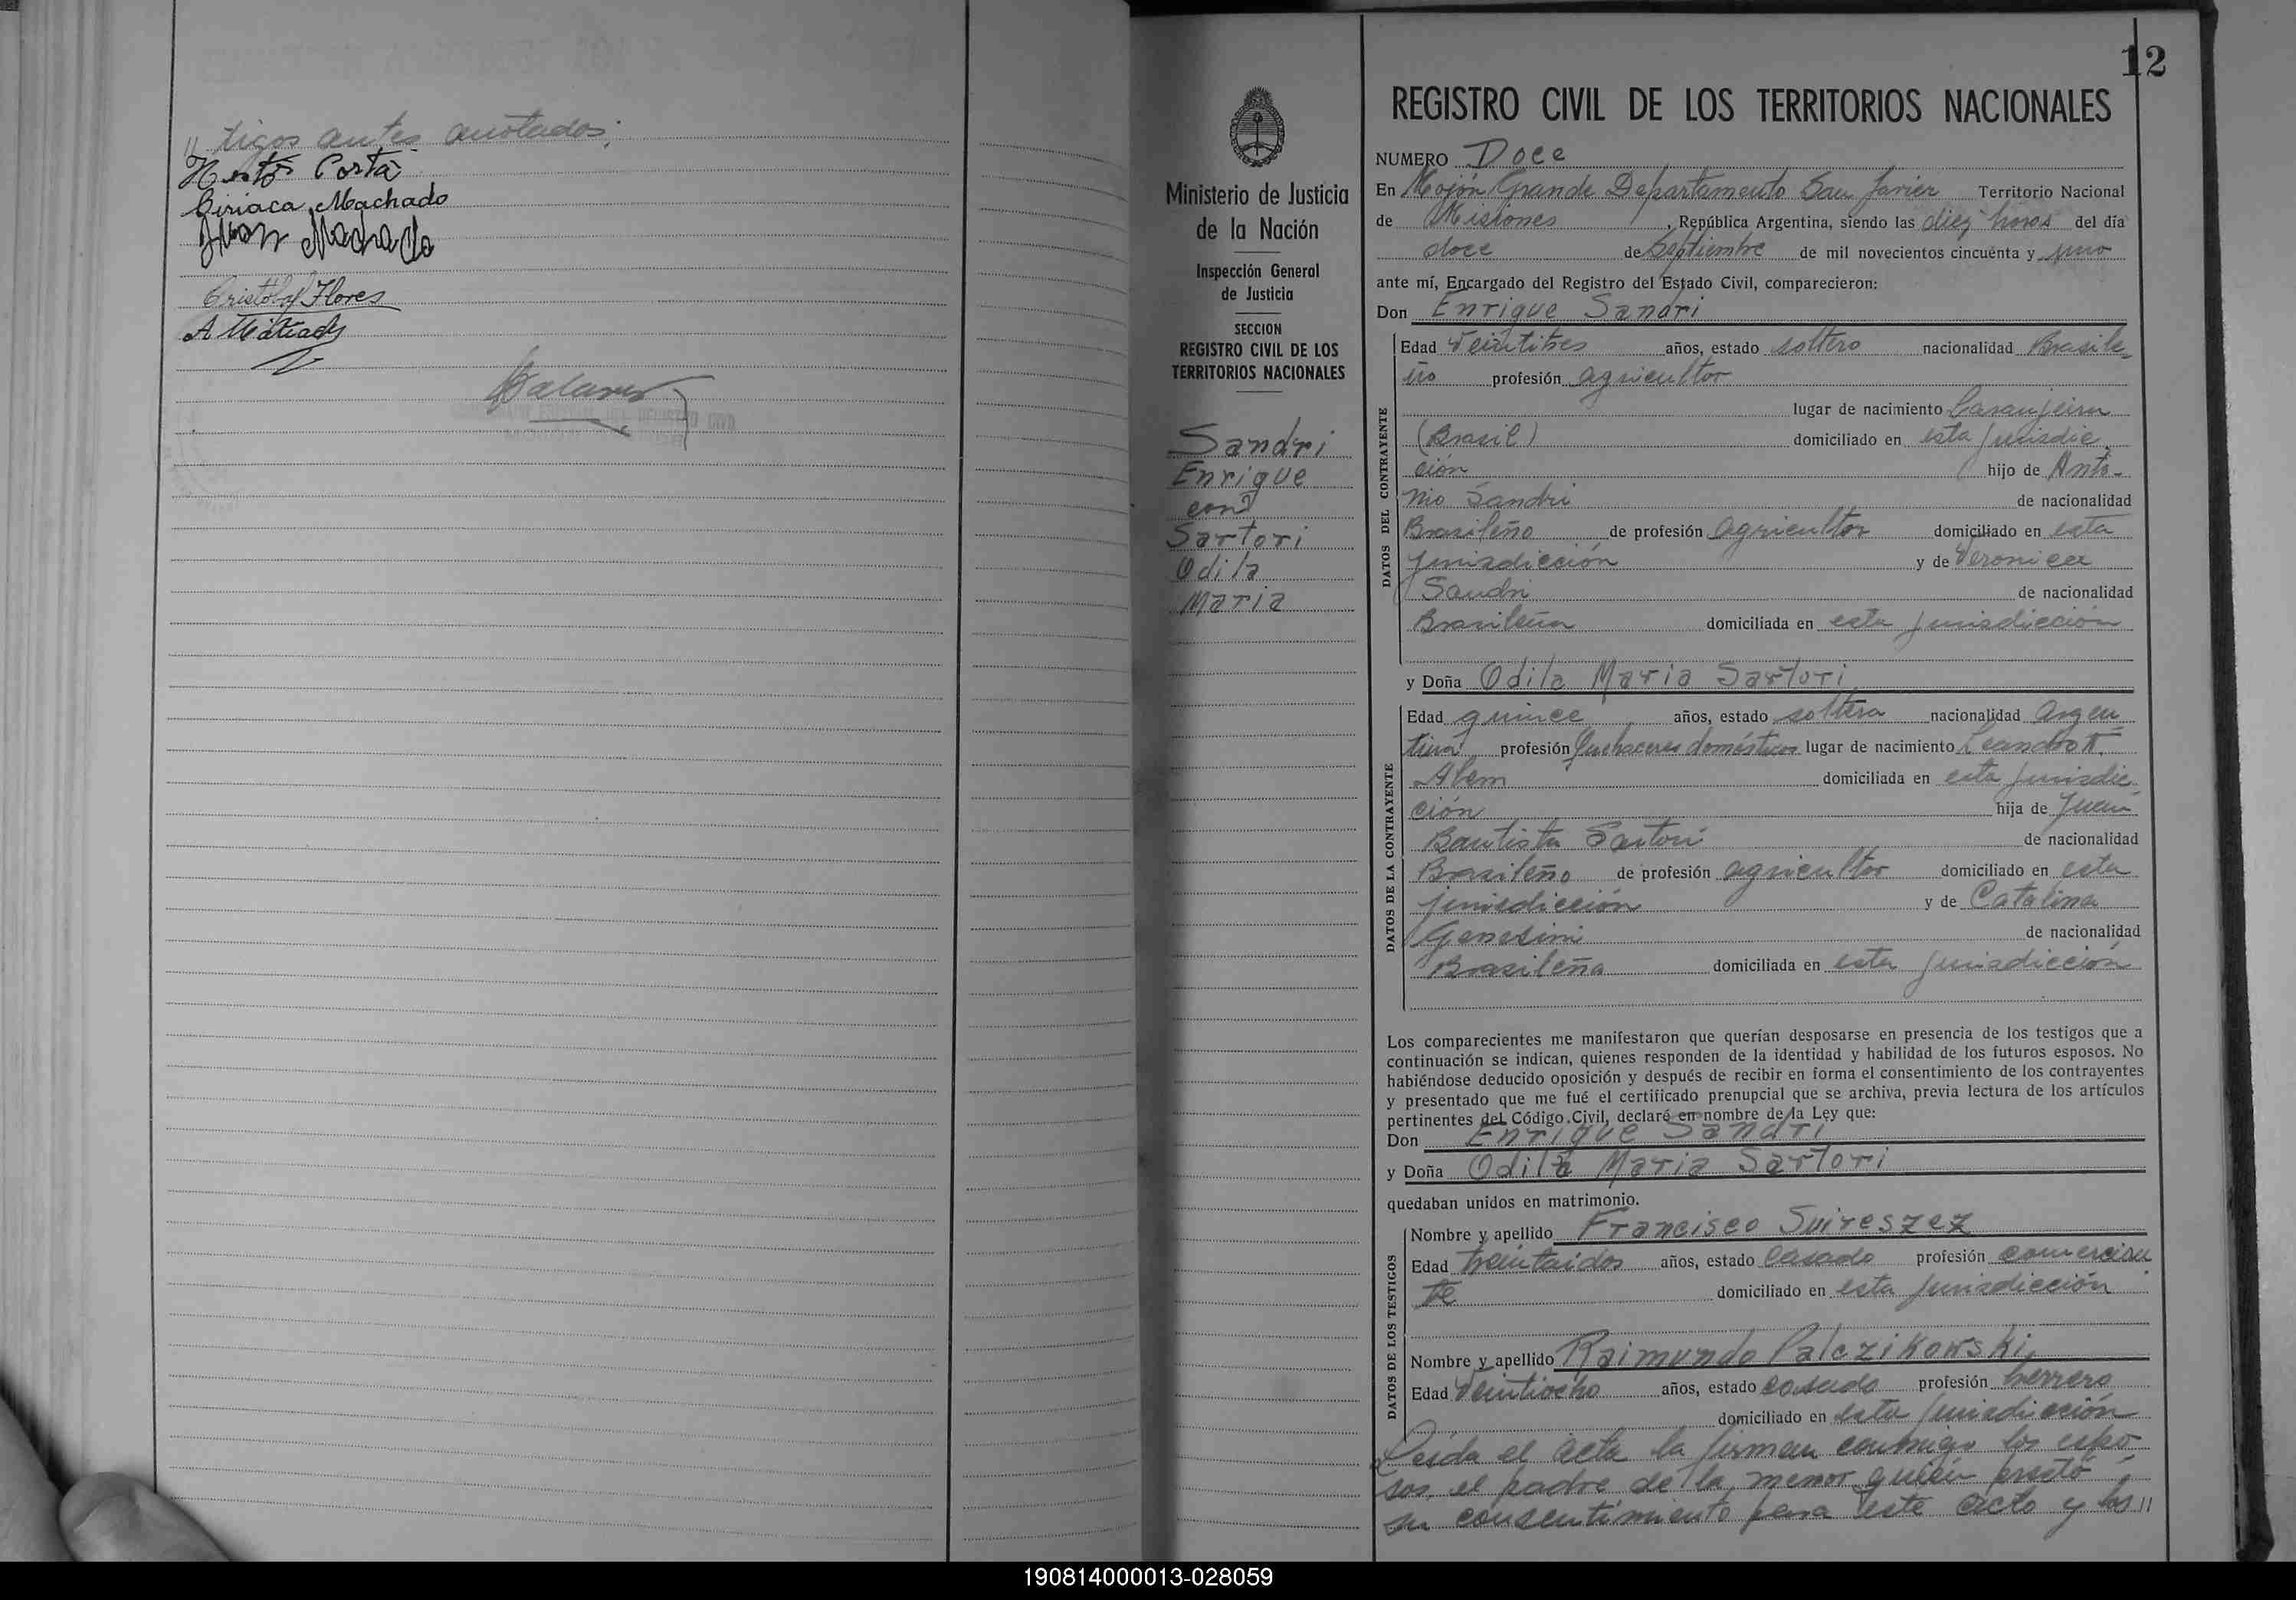 " tigos antes anotados:
Costa
Ciriaca Machado
Juan Machado
Cristobal Flores
A Machado
12
Ministerio de Justicia
de la Nación
Inspección General
de Justicia
SECCION
REGISTRO CIVIL DE LOS
TERRITORIOS NACIONALES
Sandri
Enrique
con
Sartori
Odila
Maria
REGISTRO CIVIL DE LOS TERRITORIOS NACIONALES
NUMERO Doce
En Mojón Grande Departamento San Javier Territorio Nacional
de Misiones, República Argentina, siendo las diez horas del día
doce de Septiembre de mil novecientos cincuenta y uno
ante mí, Encargado del Registro del Estado Civil, comparecieron:
Don Enrique Sandri
DATOS DEL CONTRAYENTE
Edad veintitres años, estado soltero nacionalidad Brasile-
ño profesión agricultor
lugar de nacimiento
(Brasil) domiciliado en esta jurisdic
ción hijo de Anto-
nio Sandri de nacionalidad
Brasileño de profesión agricultor domiciliado en esta
jurisdicción y de Veronica
Sandri de nacionalidad
Brasileña domiciliada en esta jurisdicción
y Doña Odila Maria Sartori
DATOS DE LA CONTRAYENTE
Edad quince años, estado soltera nacionalidad argen-
tina profesión quehaceres domésticos lugar de nacimiento Leandro N.
Alem domiciliada en esta jurisdic
ción hija de Juan
Bautista Sartori de nacionalidad
Brasileño de profesión agricultor domiciliado en esta
jurisdicción y de Catalina
Genesini de nacionalidad
Brasileña domiciliada en esta jurisdicción
Los comparecientes me manifestaron que querían desposarse en presencia de los testigos que a
continuación se indican, quienes responden de la identidad y habilidad de los futuros esposos. No
habiéndose deducido oposición y después de recibir en forma el consentimiento de los contrayentes
y presentado que me fué el certificado prenupcial que se archiva, previa lectura de los artículos
pertinentes del Código Civil, declaré en nombre de la Ley que:
Don Enrique Sandri
y Doña Odila Maria Sartori
quedaban unidos en matrimonio.
DATOS DE LOS TESTIGOS
Nombre y apellido Francisco Suireszez
Edad treintaidos años, estado casado profesión comercian
te domiciliado en esta jurisdicción
Nombre y apellido Raimundo Palczikowski
Edad veintiocho años, estado casado profesión herrero
domiciliado en esta jurisdicción
Leída el acta la firman conmigo los espo
sos, el padre de la menor quien prestó
su consentimiento para este acto y los "
190814000013-028059